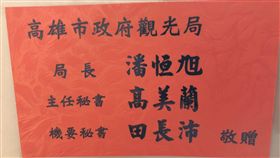 高雄市政府觀光局
局長 潘恒旭
主任秘書 髙美蘭
機要秘書 田長沛 敬贈